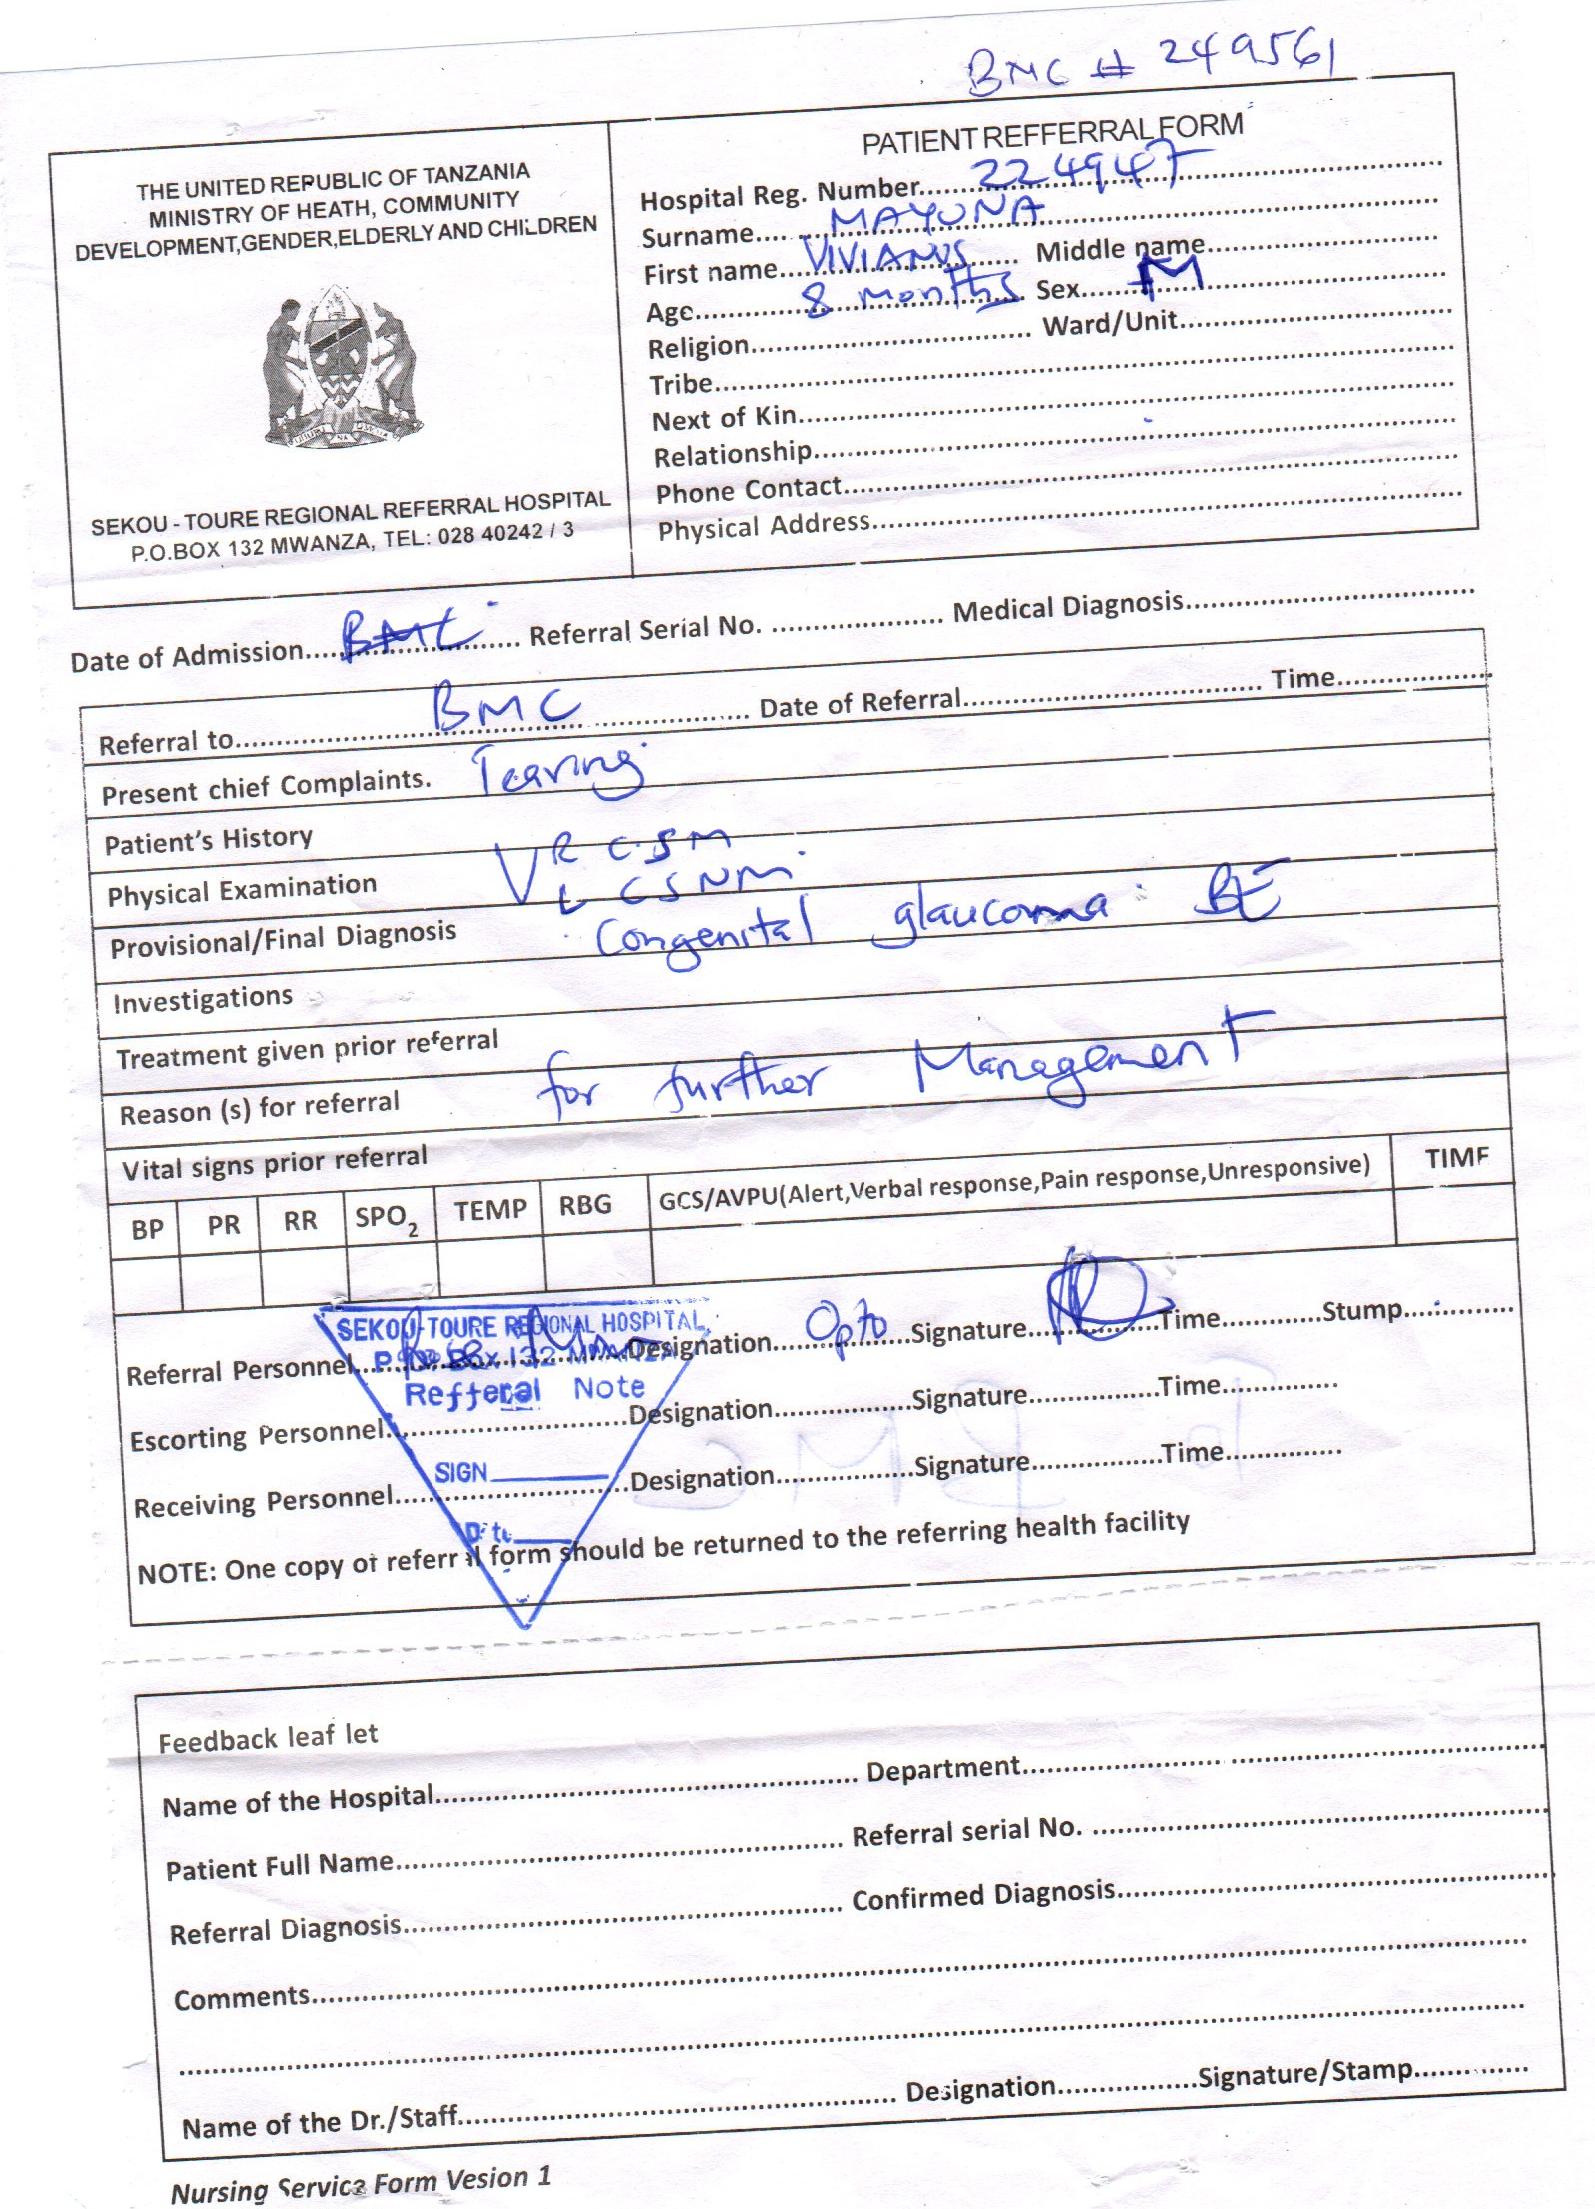 BMC # 249561
THE UNITED REPUBLIC OF TANZANIA
MINISTRY OF HEATH, COMMUNITY
DEVELOPMENT,GENDER,ELDERLY AND CHILDREN
SEKOU - TOURE REGIONAL REFERRAL HOSPITAL
P.O.BOX 132 MWANZA, TEL: 028 40242 / 3
PATIENT REFFERRAL FORM
Hospital Reg. Number 224947
Surname MAYUNA
First name VIVIANUS Middle name
Age 8 months Sex M
Religion Ward/Unit
Tribe
Next of Kin
Relationship
Phone Contact
Physical Address
Date of Admission BMC Referral Serial No. Medical Diagnosis
Referral to BMC Date of Referral Time
Present chief Complaints. Tearing
Patient's History
Physical Examination V R C.S M
L C S N M
Provisional/Final Diagnosis Congenital glaucoma BE
Investigations
Treatment given prior referral
Reason (s) for referral for further Management
Vital signs prior referral
BP PR RR SPO2 TEMP RBG GCS/AVPU(Alert,Verbal response,Pain response,Unresponsive) TIME
SEKOU-TOURE REGIONAL HOSPITAL
P. O. Box 132 MWANZA
Refferal Note
SIGN
Date
Referral Personnel Designation Opto Signature Time Stump
Escorting Personnel Designation Signature Time
Receiving Personnel Designation Signature Time
NOTE: One copy of referral form should be returned to the referring health facility
Feedback leaf let
Name of the Hospital Department
Patient Full Name Referral serial No.
Referral Diagnosis Confirmed Diagnosis
Comments
Name of the Dr./Staff Designation Signature/Stamp
Nursing Service Form Vesion 1